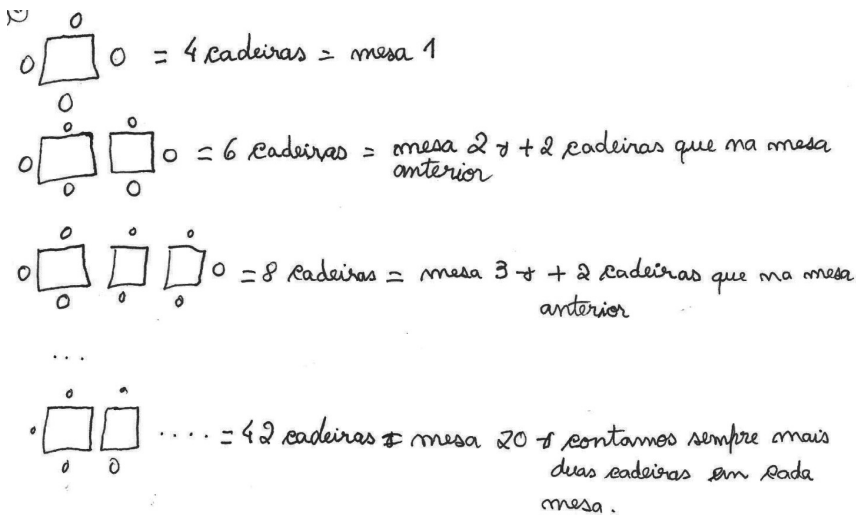 = 4 cadeiras = mesa 1
= 6 cadeiras = mesa 2 → + 2 cadeiras que na mesa
anterior
= 8 cadeiras = mesa 3 → + 2 cadeiras que na mesa
anterior
...
.... = 42 cadeiras = mesa 20 → contamos sempre mais
duas cadeiras em cada
mesa.